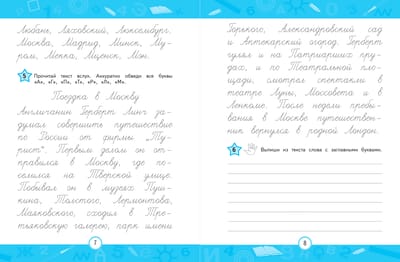 Любань, Ляховский, Люксембург,
Москва, Мадрид, Минск, Му-
ром, Мекка, Муенск, Мон.
5 Прочитай текст вслух. Аккуратно обведи все буквы
Поездка в Москву
Англичанин Герберт Линч за-
думал совершить путешествие
по России от фирмы "Ту-
рист". Первым делом он от-
правился в Москву, где по-
селился на Тверской улице.
Побывал он в музеях Пуш-
кина, Толстого, Лермонтова,
Маяковского, сходил в Тре-
тьяковскую галерею, парк имени
7
Горького, Александровский сад
и Аптекарский огород. Герберт
гулял и на Патриарших пру-
дах, и по Театральной пло-
щади, смотрел спектакли в
театре Луны, Моссовета и в
Ленкоме. После недели пребы-
вания в Москве путешествен-
ник вернулся в родной Лондон.
6 Выпиши из текста слова с заглавными буквами.
8